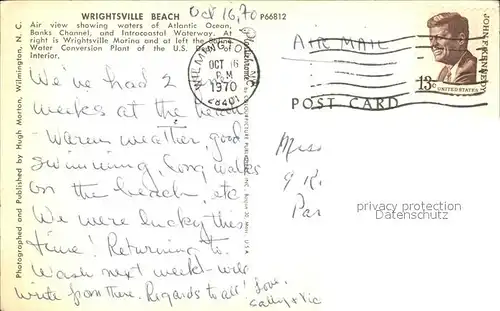 WRIGHTSVILLE BEACH
Oct 16, 70
P66812
Air view showing waters of Atlantic Ocean,
Banks Channel, and Intracoastal Waterway. At
right is Wrightsville Marina and at left the
Water Conversion Plant of the U.S. of
Interior.
Photographed and Published by Hugh Morton, Wilmington, N. C.
WILMINGTON
OCT 16
PM
1970
28401
AIR MAIL
JOHN F. KENNEDY
13c
UNITED STATES
POST CARD
We've had 2
weeks at the beach
- Warm weather, good
swimming, long walks
on the beach, etc
We were lucky this
time! Returning to
Wash next week - will
write from there. Regards to all! Love,
Cathy & Vic
Miss
9 R.
Par
privacy protection
Datenschutz